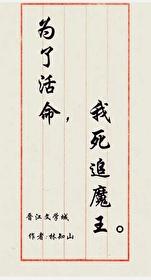 为了活命，
我死追魔王。
晋江文学城
作者：林知山